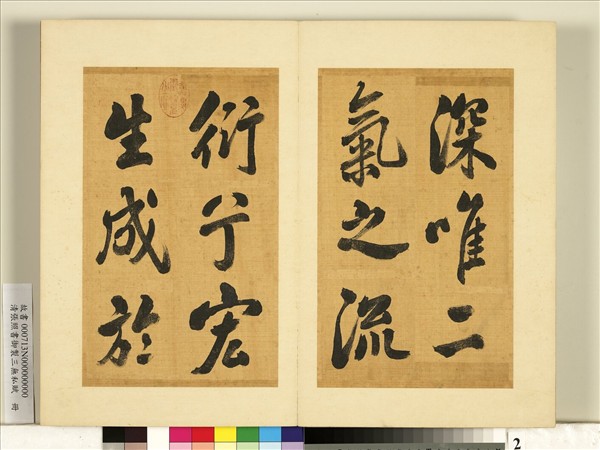 深唯二
氣之流
衍兮宏
生成於
故書 000713N000000000
清張照書御製三無私賦 冊
2